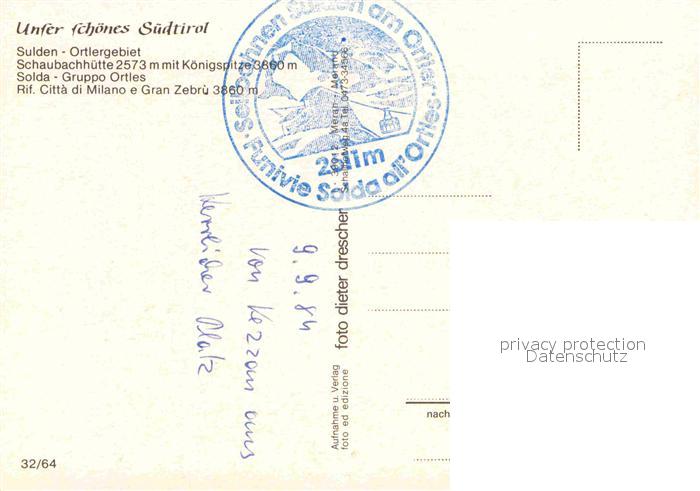 Unser schönes Südtirol
Sulden - Ortlergebiet
Schaubachhütte 2573 m mit Königspitze 3860 m
Solda - Gruppo Ortles
Rif. Città di Milano e Gran Zebrù 3860 m
Seilbahnen Sulden am Ortler
2611m
Funivie Solda all'Ortles
9.9.84
von Kezzan aus
Herrlicher Platz
foto dieter drescher
39012 Meran / Merano
Tel. 0473-34566
Aufnahme u. Verlag
foto ed edizione
nach
privacy protection
Datenschutz
32/64